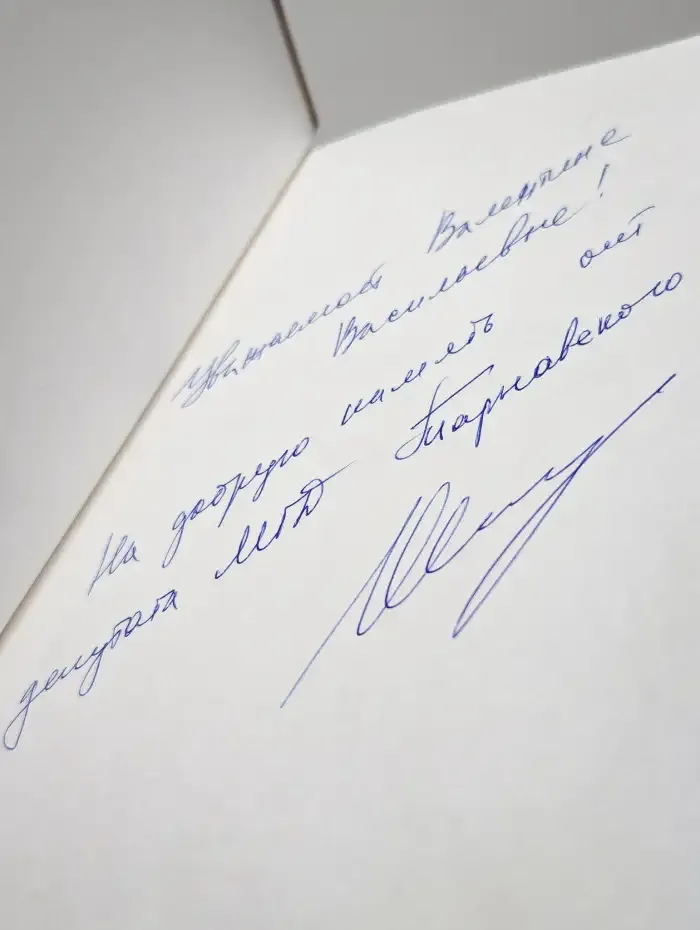 Уважаемой Валентине
Васильевне!
На добрую память от
депутата МГД Тарнавского